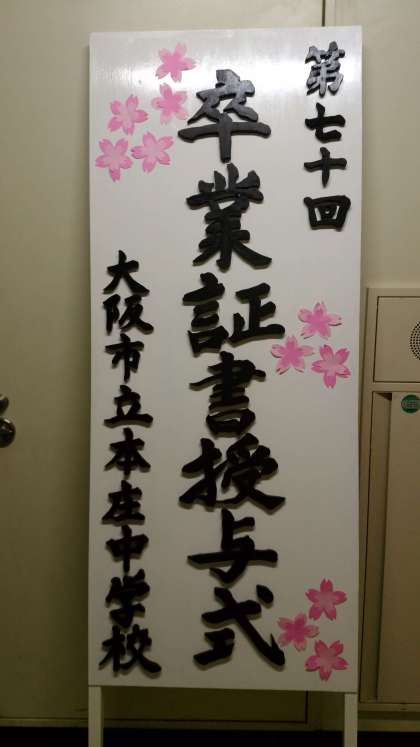 第七十回
卒業証書授与式
大阪市立本庄中学校